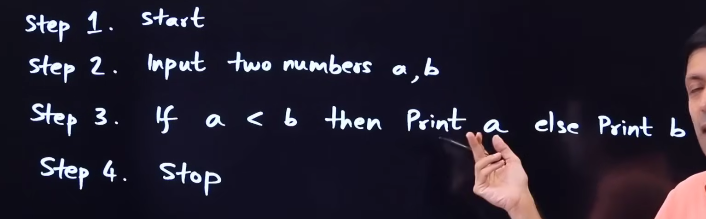 Step 1. Start
Step 2. Input two numbers a,b
Step 3. If a < b then Print a else Print b
Step 4. Stop